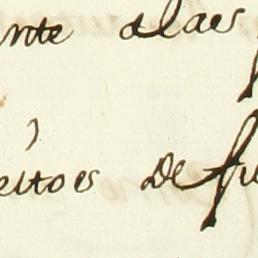 nte alaer
eitoes de fu